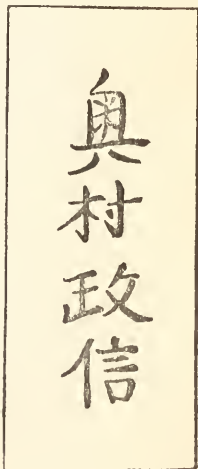 奥村政信